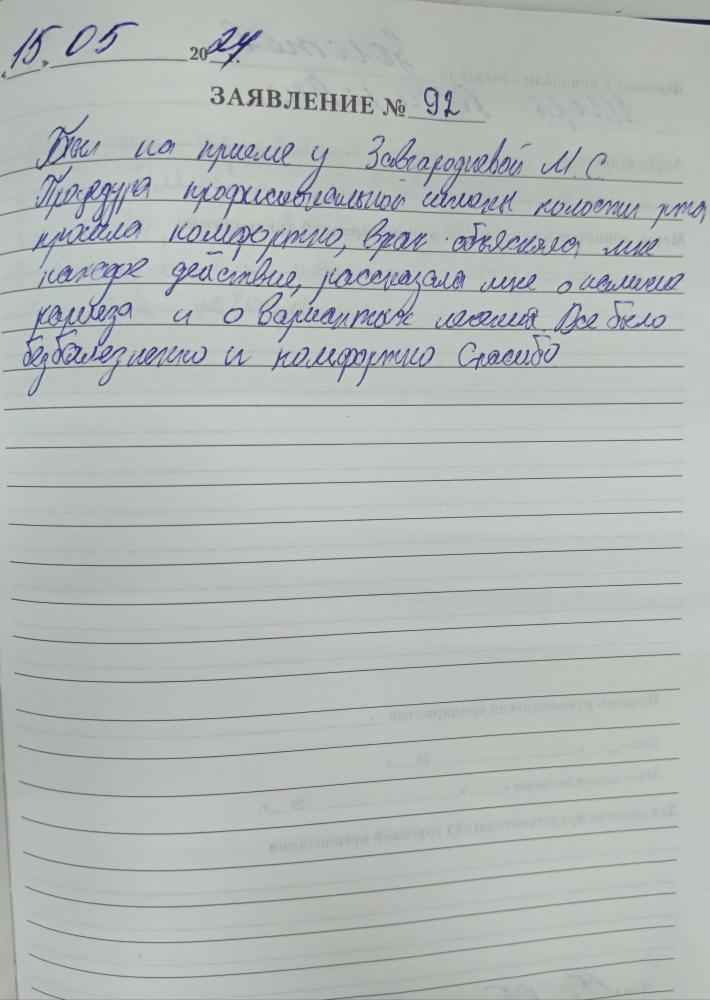 «15» 05 2024 г.
ЗАЯВЛЕНИЕ № 92
Был на приеме у Завгородневой М. С.
Процедура профессиональной гигиены полости рта
прошла комфортно, врач объясняла мне
каждое действие, рассказала мне о наличие
кариеза и о вариантах лечения. Все было
безболезненно и комфортно Спасибо